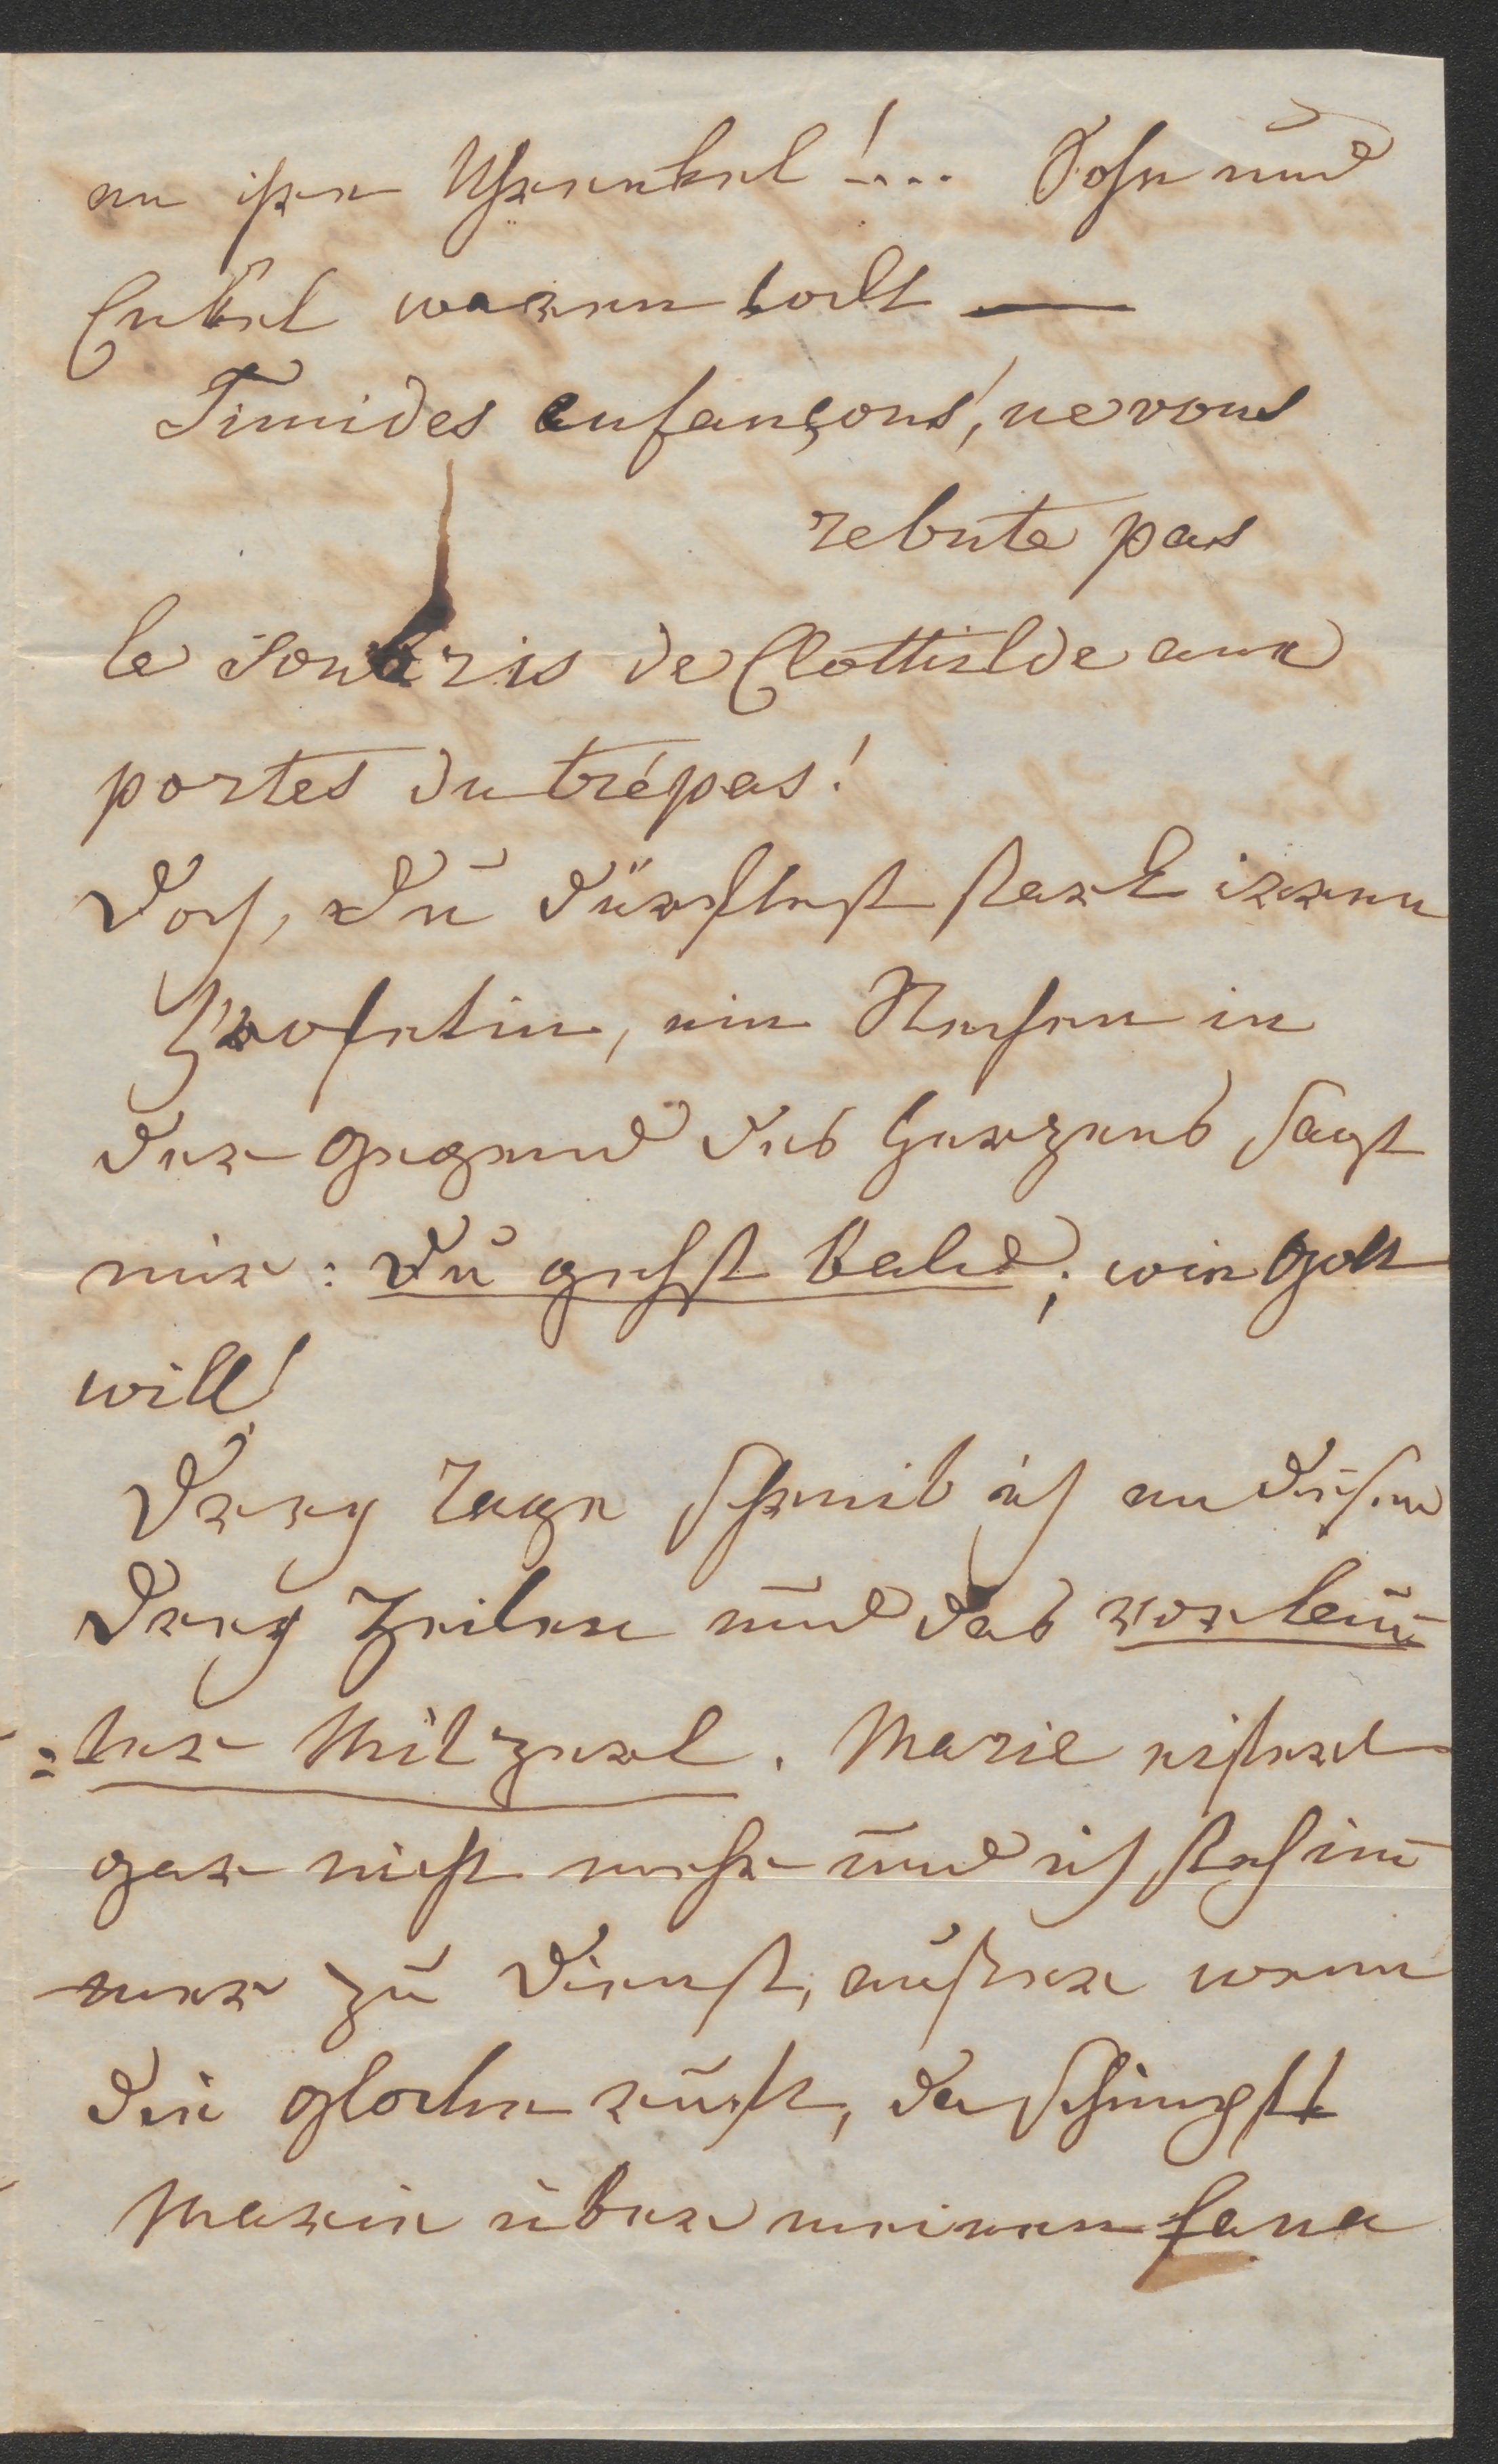 an ihre Uhrenkel!... Sohn und
Enkel waren todt —
Timides enfançons, ne vous
rebute pas
le souris de Clottilde aux
portes du trépas!
Doch, Du dürftest stark irren
Profetin, ein Stechen in
der Gegend des Herzens sagt
mir: Du gehst bald; wie Gott
will!
Drey Tage schreib ich an diesen
drey Zeilen und das
. Marie eifert
gar nicht mehr und ich steh im
mer zu Dienst, außer wenn
die Glocke ruft, da schimpft
Marie über meinen fana